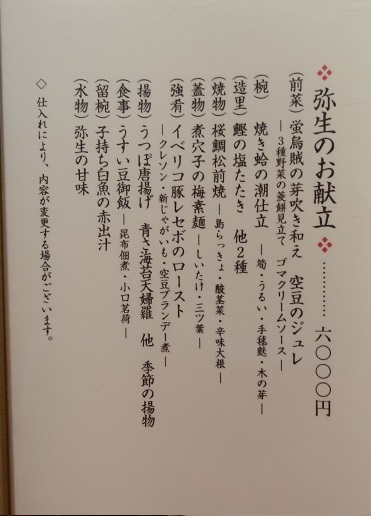 ❖ 弥生のお献立 ❖ ………… 六〇〇〇円
(前菜) 蛍烏賊の芽吹き和え 空豆のジュレ
―3種野菜の菱餅見立て ゴマクリームソース―
(椀) 焼き蛤の潮仕立 ―筍・うるい・手毬麩・木の芽―
(造里) 鰹の塩たたき 他2種
(焼物) 桜鯛松前焼 ―島らっきょ・酸茎菜・辛味大根―
(蓋物) 煮穴子の梅素麺 ―しいたけ・三ツ葉―
(強肴) イベリコ豚レセボのロースト
―クレソン・新じゃがいも・空豆ブランデー煮―
(揚物) うつぼ唐揚げ 青さ海苔天婦羅 他 季節の揚物
(食事) うすい豆御飯 ―昆布佃煮・小口茗荷―
(留椀) 子持ち白魚の赤出汁
(水物) 弥生の甘味
◇ 仕入れにより、内容が変更する場合がございます。